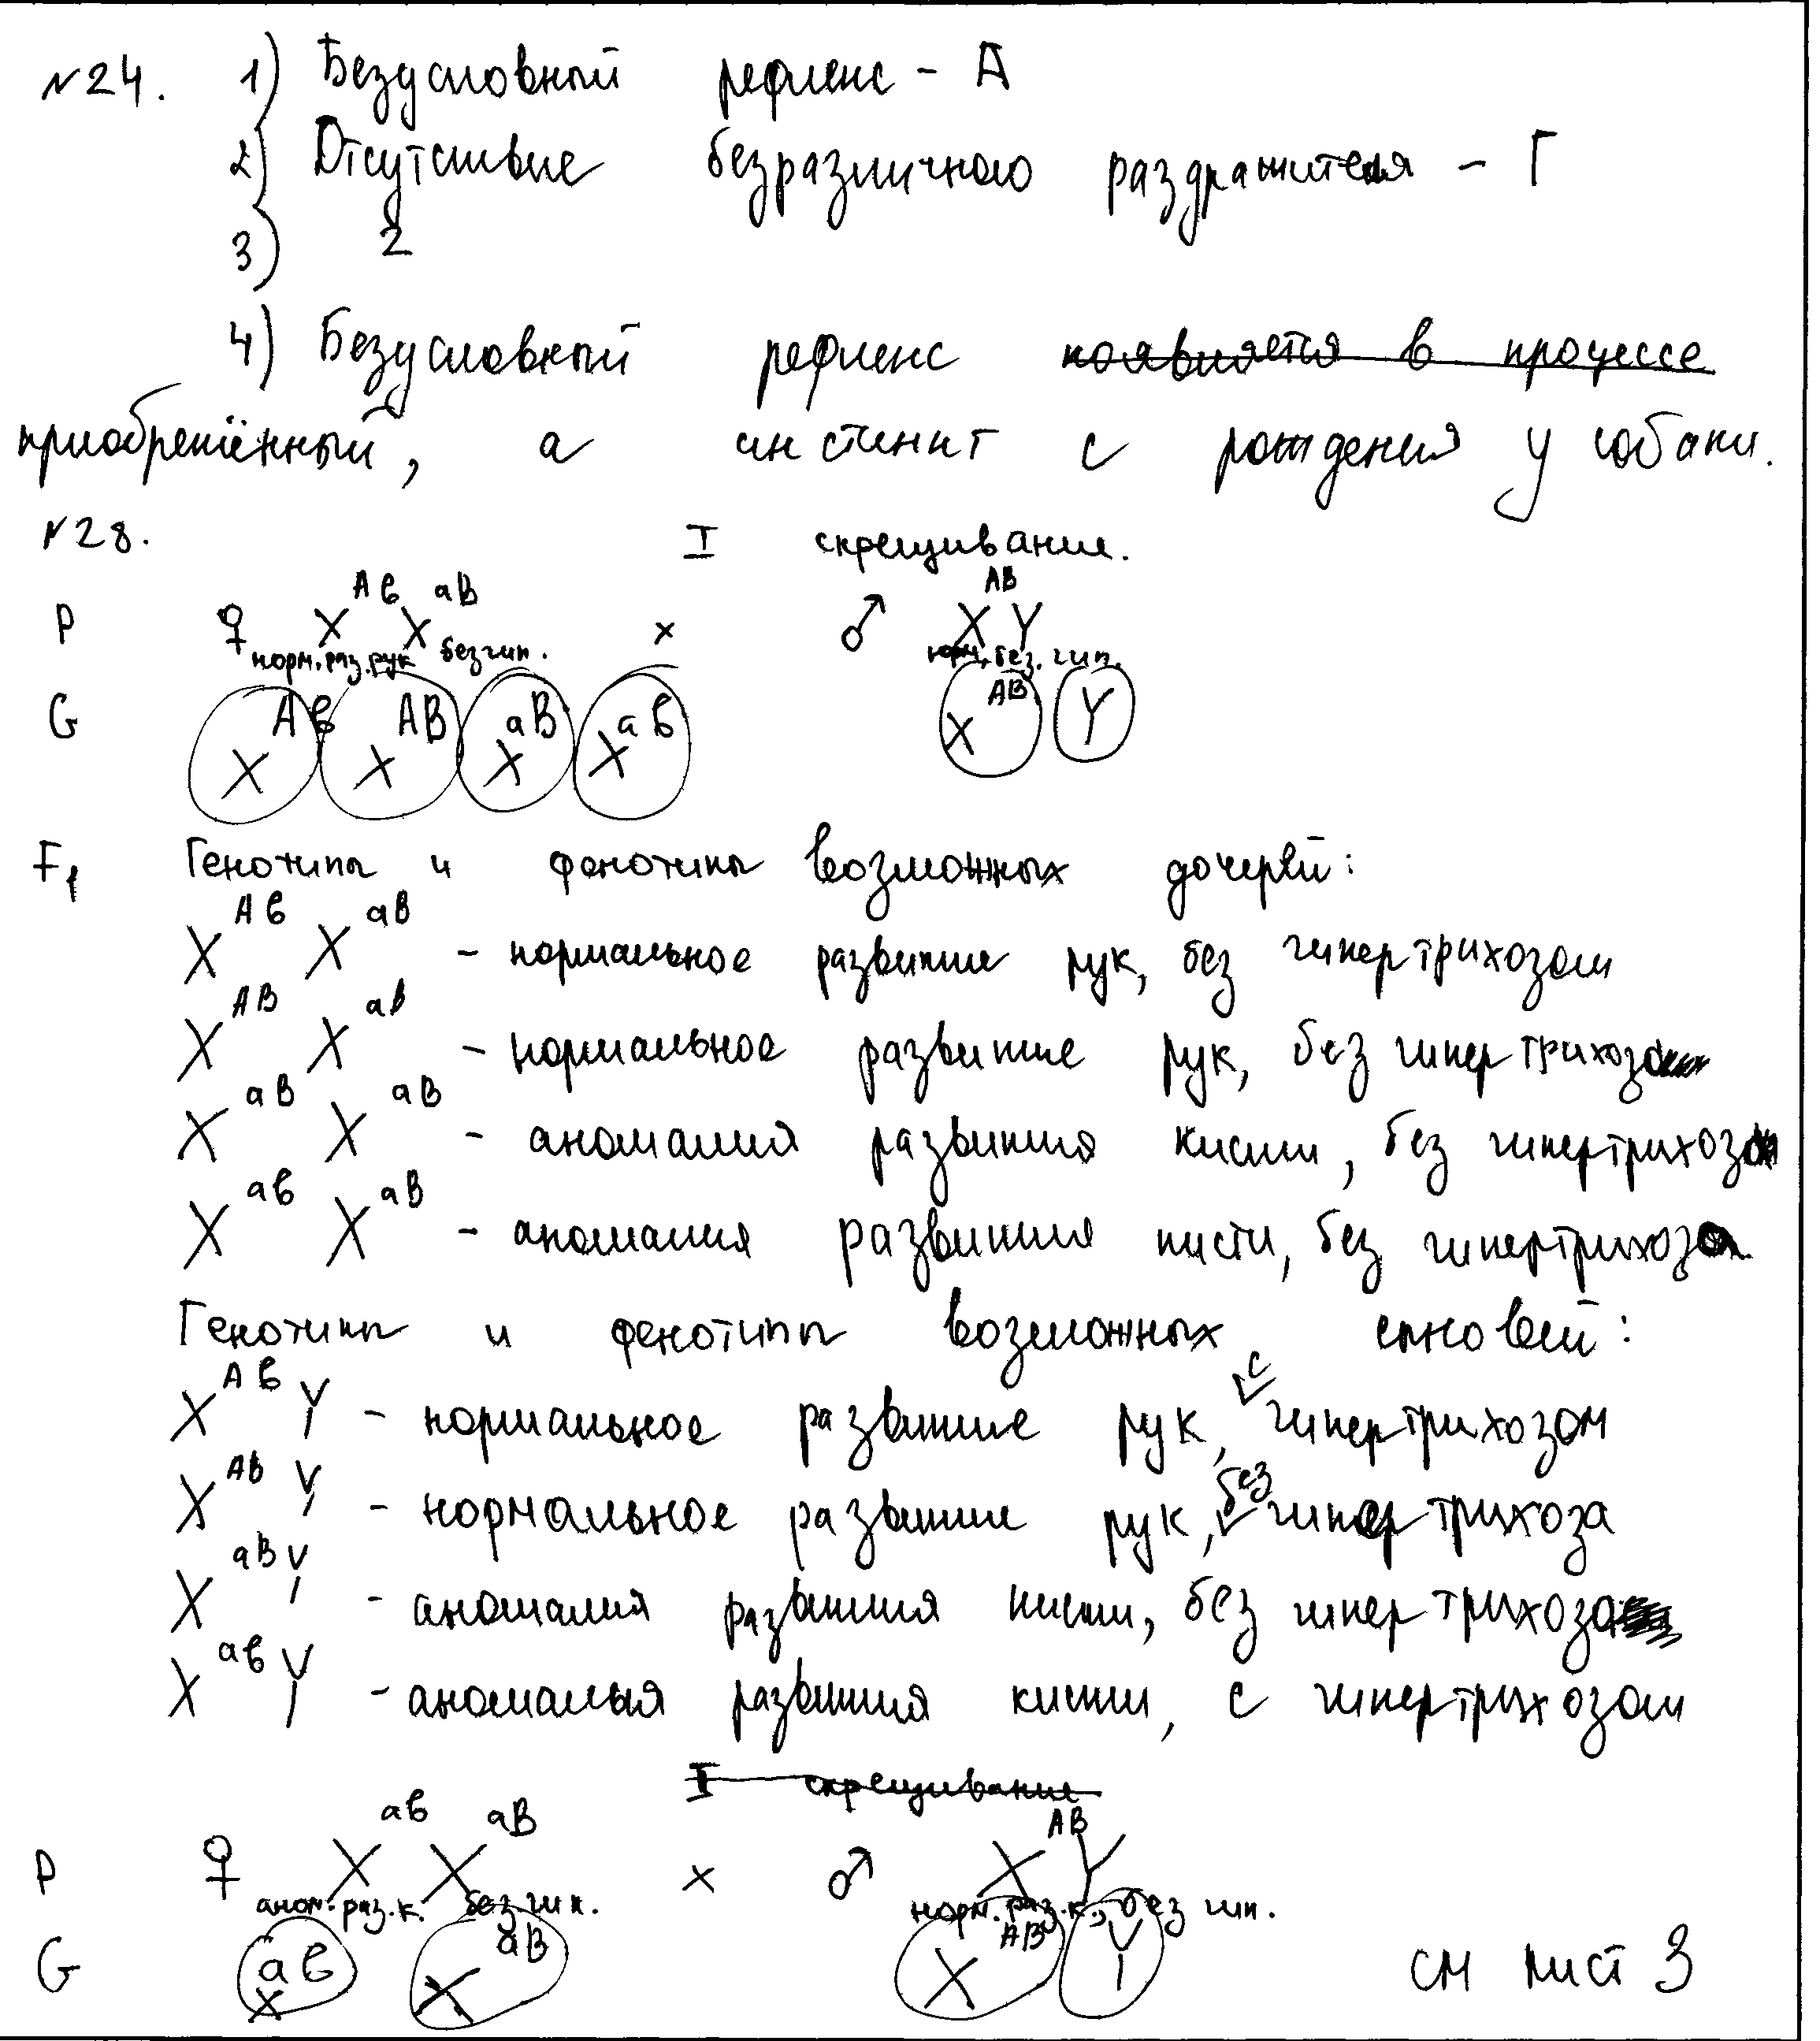 №24. 1) Безусловный рефлекс - А
2) Отсутствие безразличного раздражителя - Г
3) 2
4) Безусловный рефлекс появляется в процессе
приобретённый, а инстинкт с рождения у собаки.
№28. I скрещивание.
P ♀ X^Aв X^aB × ♂ X^AB Y
норм. раз. рук без гип. норм. без. гип.
G X^Aв X^AB X^aB X^aв X^AB Y
F1 Генотипы и фенотипы возможных дочерей:
X^Aв X^aB - нормальное развитие рук, без гипертрихозом
X^AB X^aB - нормальное развитие рук, без гипертрихоза
X^aB X^aB - аномалия развития кисти, без гипертрихоза
X^aв X^aB - аномалия развития кисти, без гипертрихоза
Генотипы и фенотипы возможных сыновей:
X^Aв Y - нормальное развитие рук, с гипертрихозом
X^AB Y - нормальное развитие рук, без гипертрихоза
X^aB Y - аномалия развития кисти, без гипертрихоза
X^aв Y - аномалия развития кисти, с гипертрихозом
I скрещивание
P ♀ X^aв X^aB × ♂ X^AB Y
аном. раз. к. без. гип. норм. раз. к., без гип.
G X^aв X^aB X^AB Y см лист 3